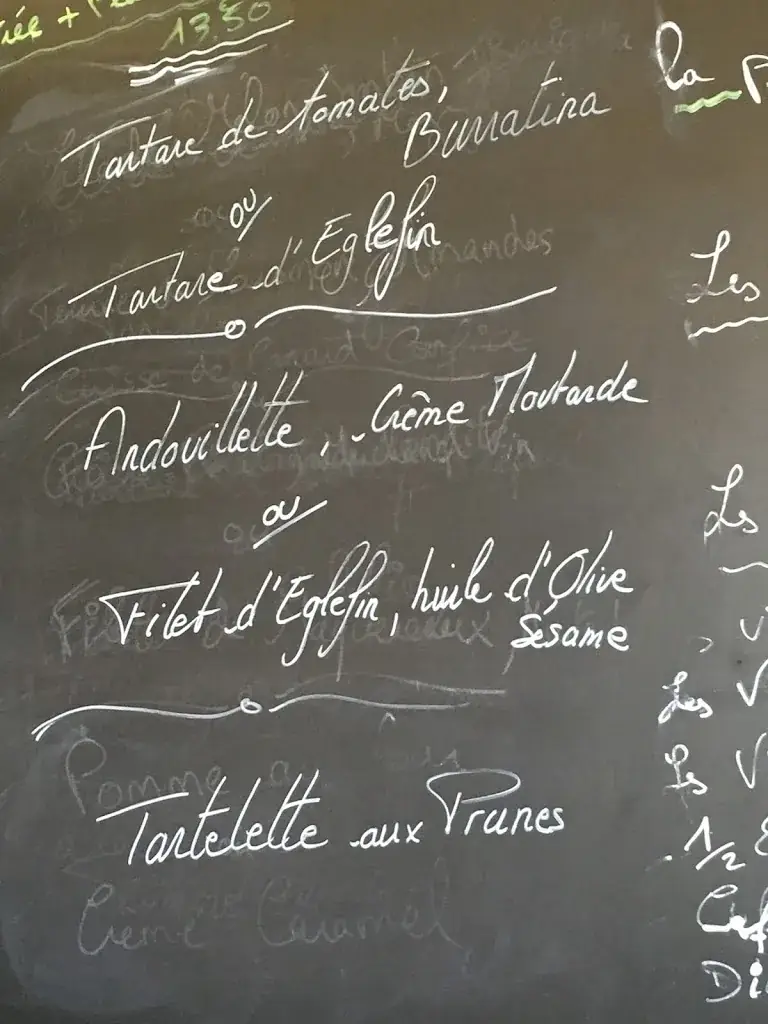 13.50
Tartare de tomates,
Burratina
ou
Tartare d'Eglefin
Andouillette, Crème Moutarde
ou
Filet d'Eglefin, huile d'Olive
Sésame
Tartelette aux Prunes
Crème Caramel
la
Les
Les
Les V
Les V
1/2